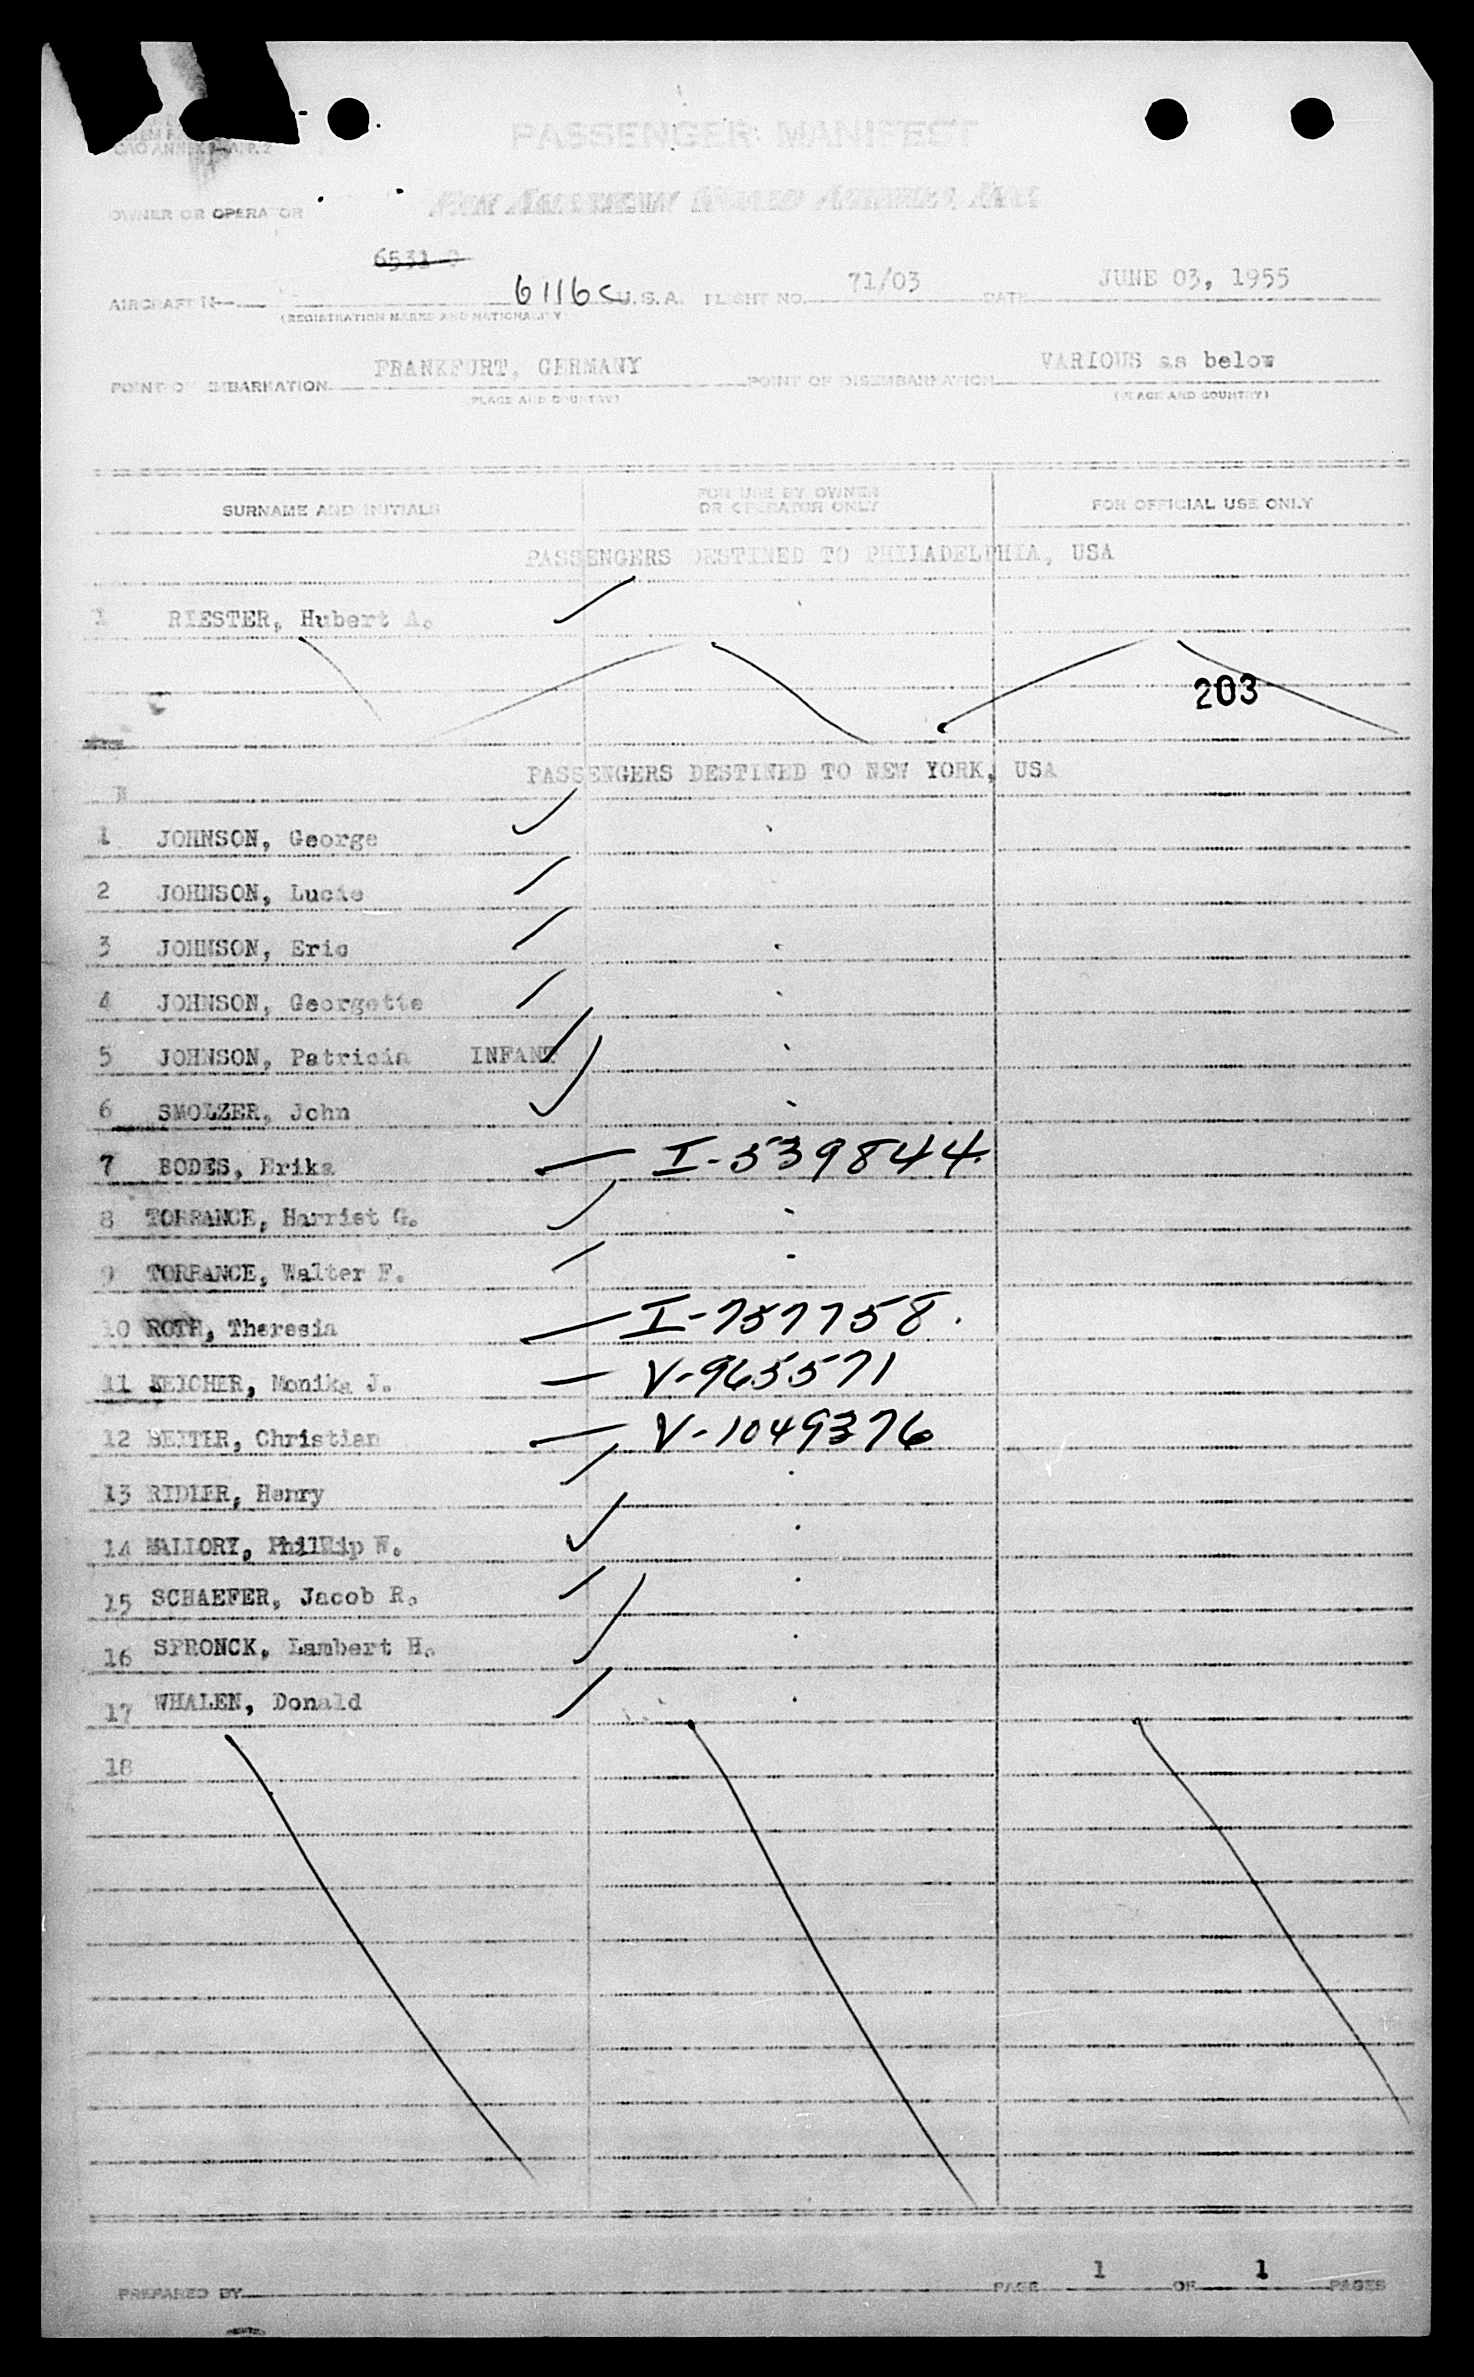 PASSENGER MANIFEST
OWNER OR OPERATOR
PAN AMERICAN WORLD AIRWAYS, INC.
6531 C
AIRCRAFT N- 6116C U.S.A. FLIGHT NO. 71/03 DATE JUNE 03, 1955
(REGISTRATION MARKS AND NATIONALITY)
POINT OF EMBARKATION FRANKFURT, GERMANY POINT OF DISEMBARKATION VARIOUS as below
(PLACE AND COUNTRY) (PLACE AND COUNTRY)
SURNAME AND INITIALS FOR USE BY OWNER OR OPERATOR ONLY FOR OFFICIAL USE ONLY
PASSENGERS DESTINED TO PHILADELPHIA, USA
1 RIESTER, Hubert A.
203
PASSENGERS DESTINED TO NEW YORK, USA
1 JOHNSON, George
2 JOHNSON, Lucie
3 JOHNSON, Eric
4 JOHNSON, Georgette
5 JOHNSON, Patricia INFANT
6 SMOLZER, John
7 BODES, Erika I-539844.
8 TORRANCE, Harriet G.
9 TORRANCE, Walter F.
10 ROTH, Theresia I-757758.
11 KEICHER, Monika J. V-965571
12 BEITER, Christian V-1049376
13 RIDLER, Henry
14 MALLORY, Phillip W.
15 SCHAEFER, Jacob R.
16 SPRONCK, Lambert H.
17 WHALEN, Donald
18
PREPARED BY PAGE 1 OF 1 PAGES